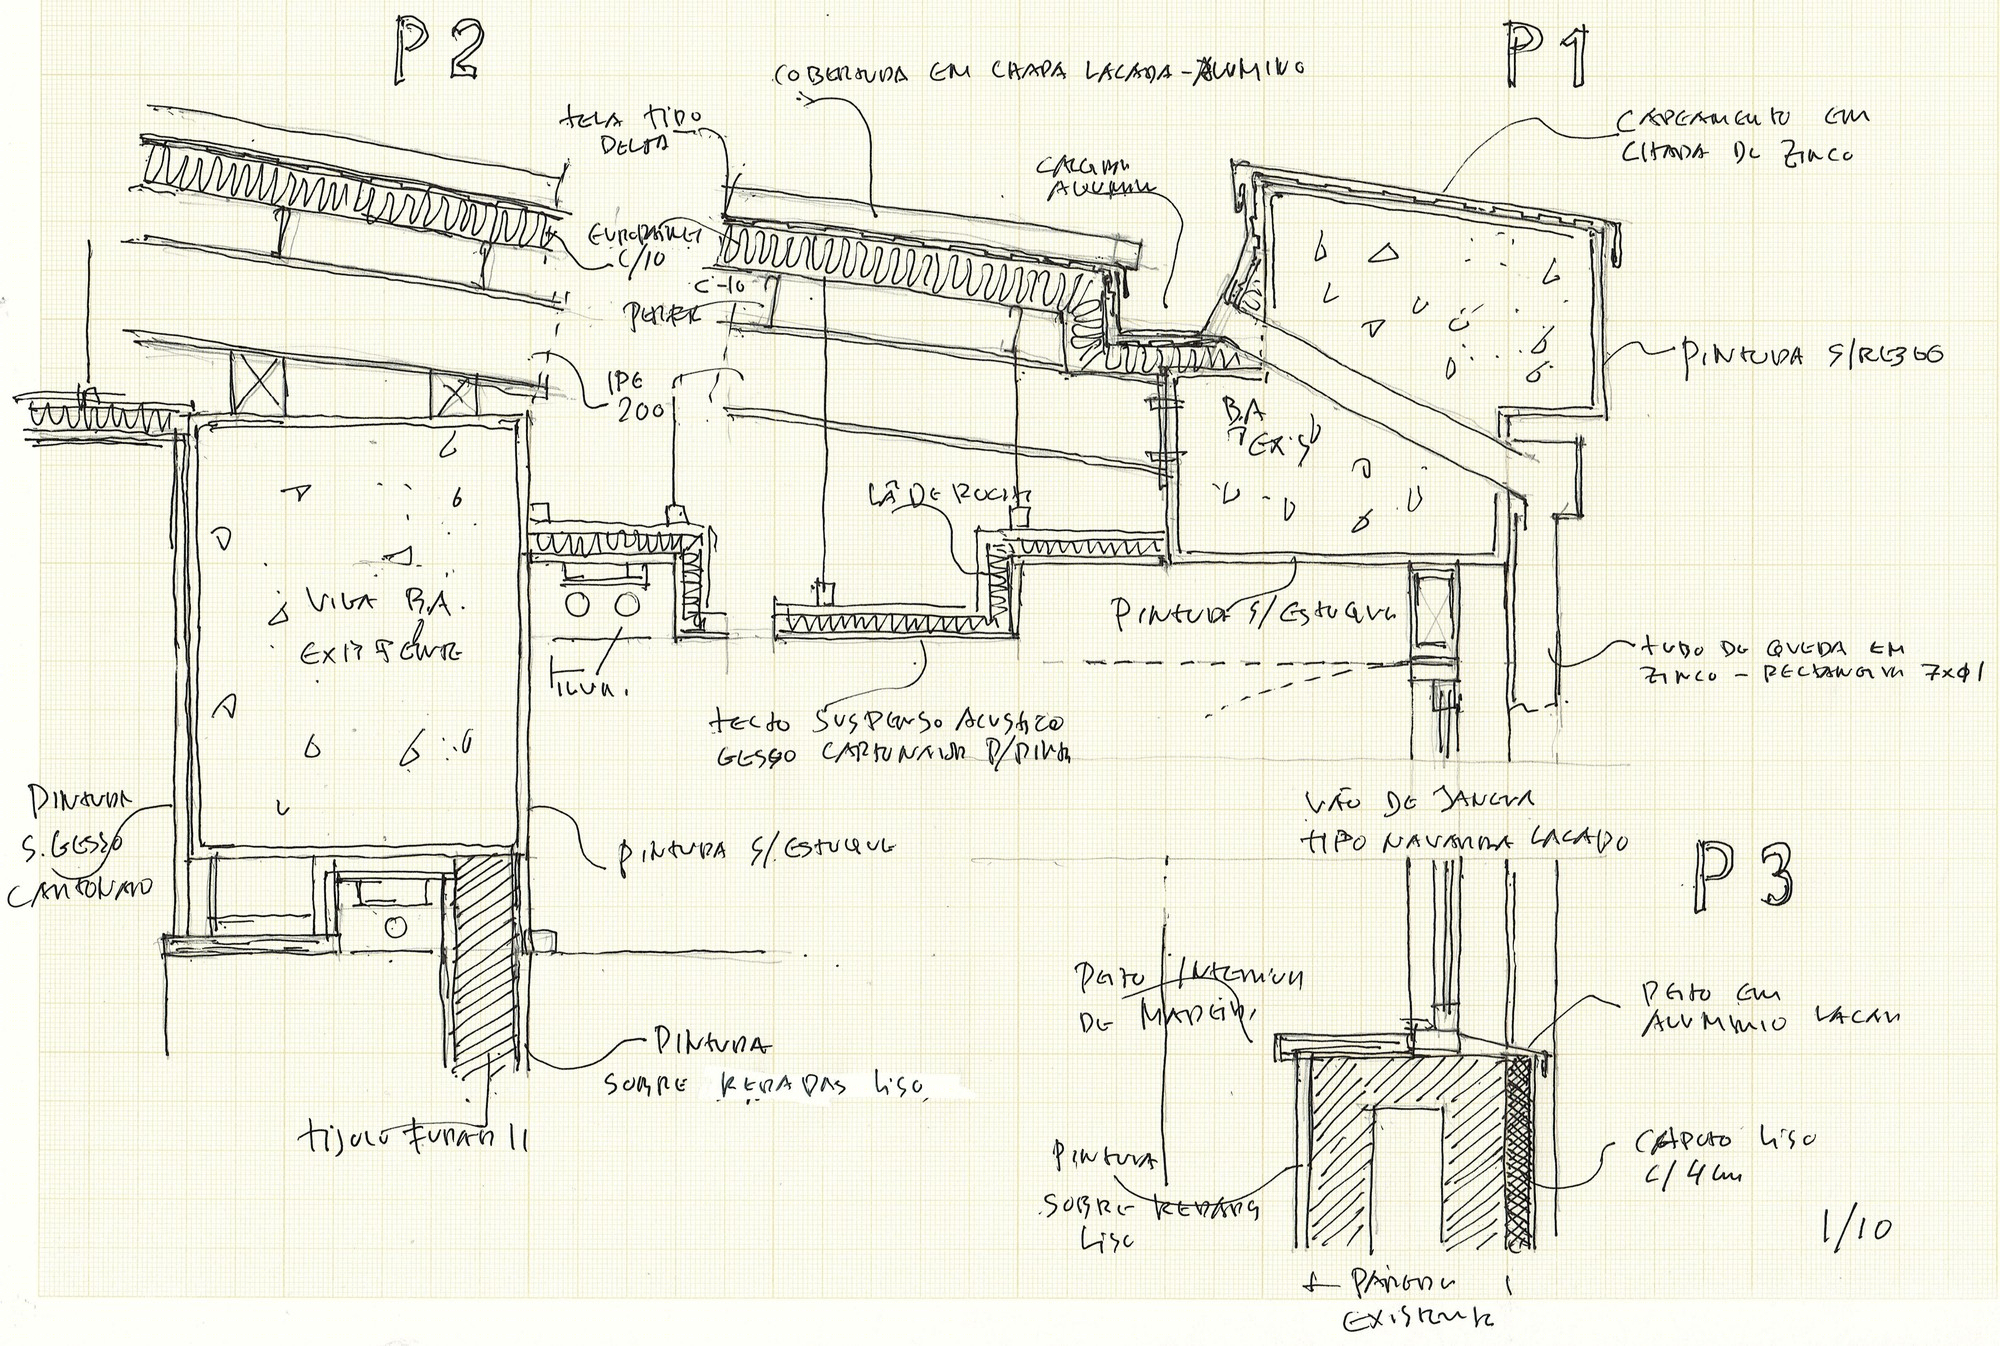 P2
P1
COBERTURA EM CHAPA LACADA - ALUMINIO
TELA TIPO
DELTA
CAPEAMENTO EM
CHAPA DE ZINCO
CALEIRA
ALUMIN
EUROPAINEL
C/10
C-10
PERFER
IPE
200
PINTURA S/REBOCO
B.A
EXIS
LÃ DE ROCHA
VIGA B.A.
EXISTENTE
ILUM.
PINTURA S/ESTUQUE
TUBO DE QUEDA EM
ZINCO - RECTANGULAR
TECTO SUSPENSO ACUSTICO
GESSO CARTONADO P/PINTAR
PINTURA
S. GESSO
CARTONADO
PINTURA S/ESTUQUE
VÃO DE JANELA
TIPO NAVARRA LACADO
P3
PEITO INTERIOR
DE MADEIRA
PEITO EM
ALUMINIO LACADO
PINTURA
SOBRE REBOCO LISO
TIJOLO FURADO 11
PINTURA
SOBRE REBOCO
LISO
CAPOTO LISO
C/4cm
1/10
PAREDE
EXISTENTE